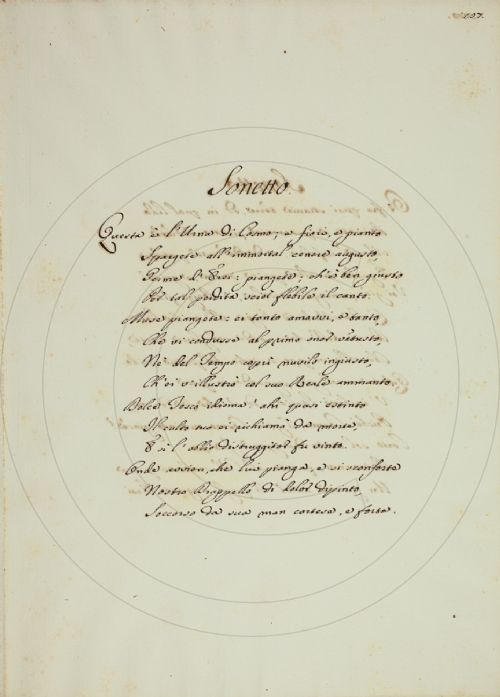 107.
Sonetto.
Questa è l'Urna di Cosmo; e fiori, e pianto
Spargete all'immortal cenere augusto,
Terme d'Eroi: piangete; ch'è ben giusto
Per tal perdita scior flebile il canto.
Muse piangete: ei tanto amovvi, e tanto
Che vi condusse al primo onor vetusto,
Nè del Tempo coprì nuvilo ingiusto,
Ch'ei v'illustrò col suo Reale ammanto.
Dolce Tosco idioma! ahi quasi estinto
Il culto tuo ei richiamò da morte,
E sì l'oblio distruggitor fu vinto.
Onde avvien, che lui pianga, e si sconforte
Nostro Drappello di dolor dipinto,
Soccorso da sua man cortese, e forte.